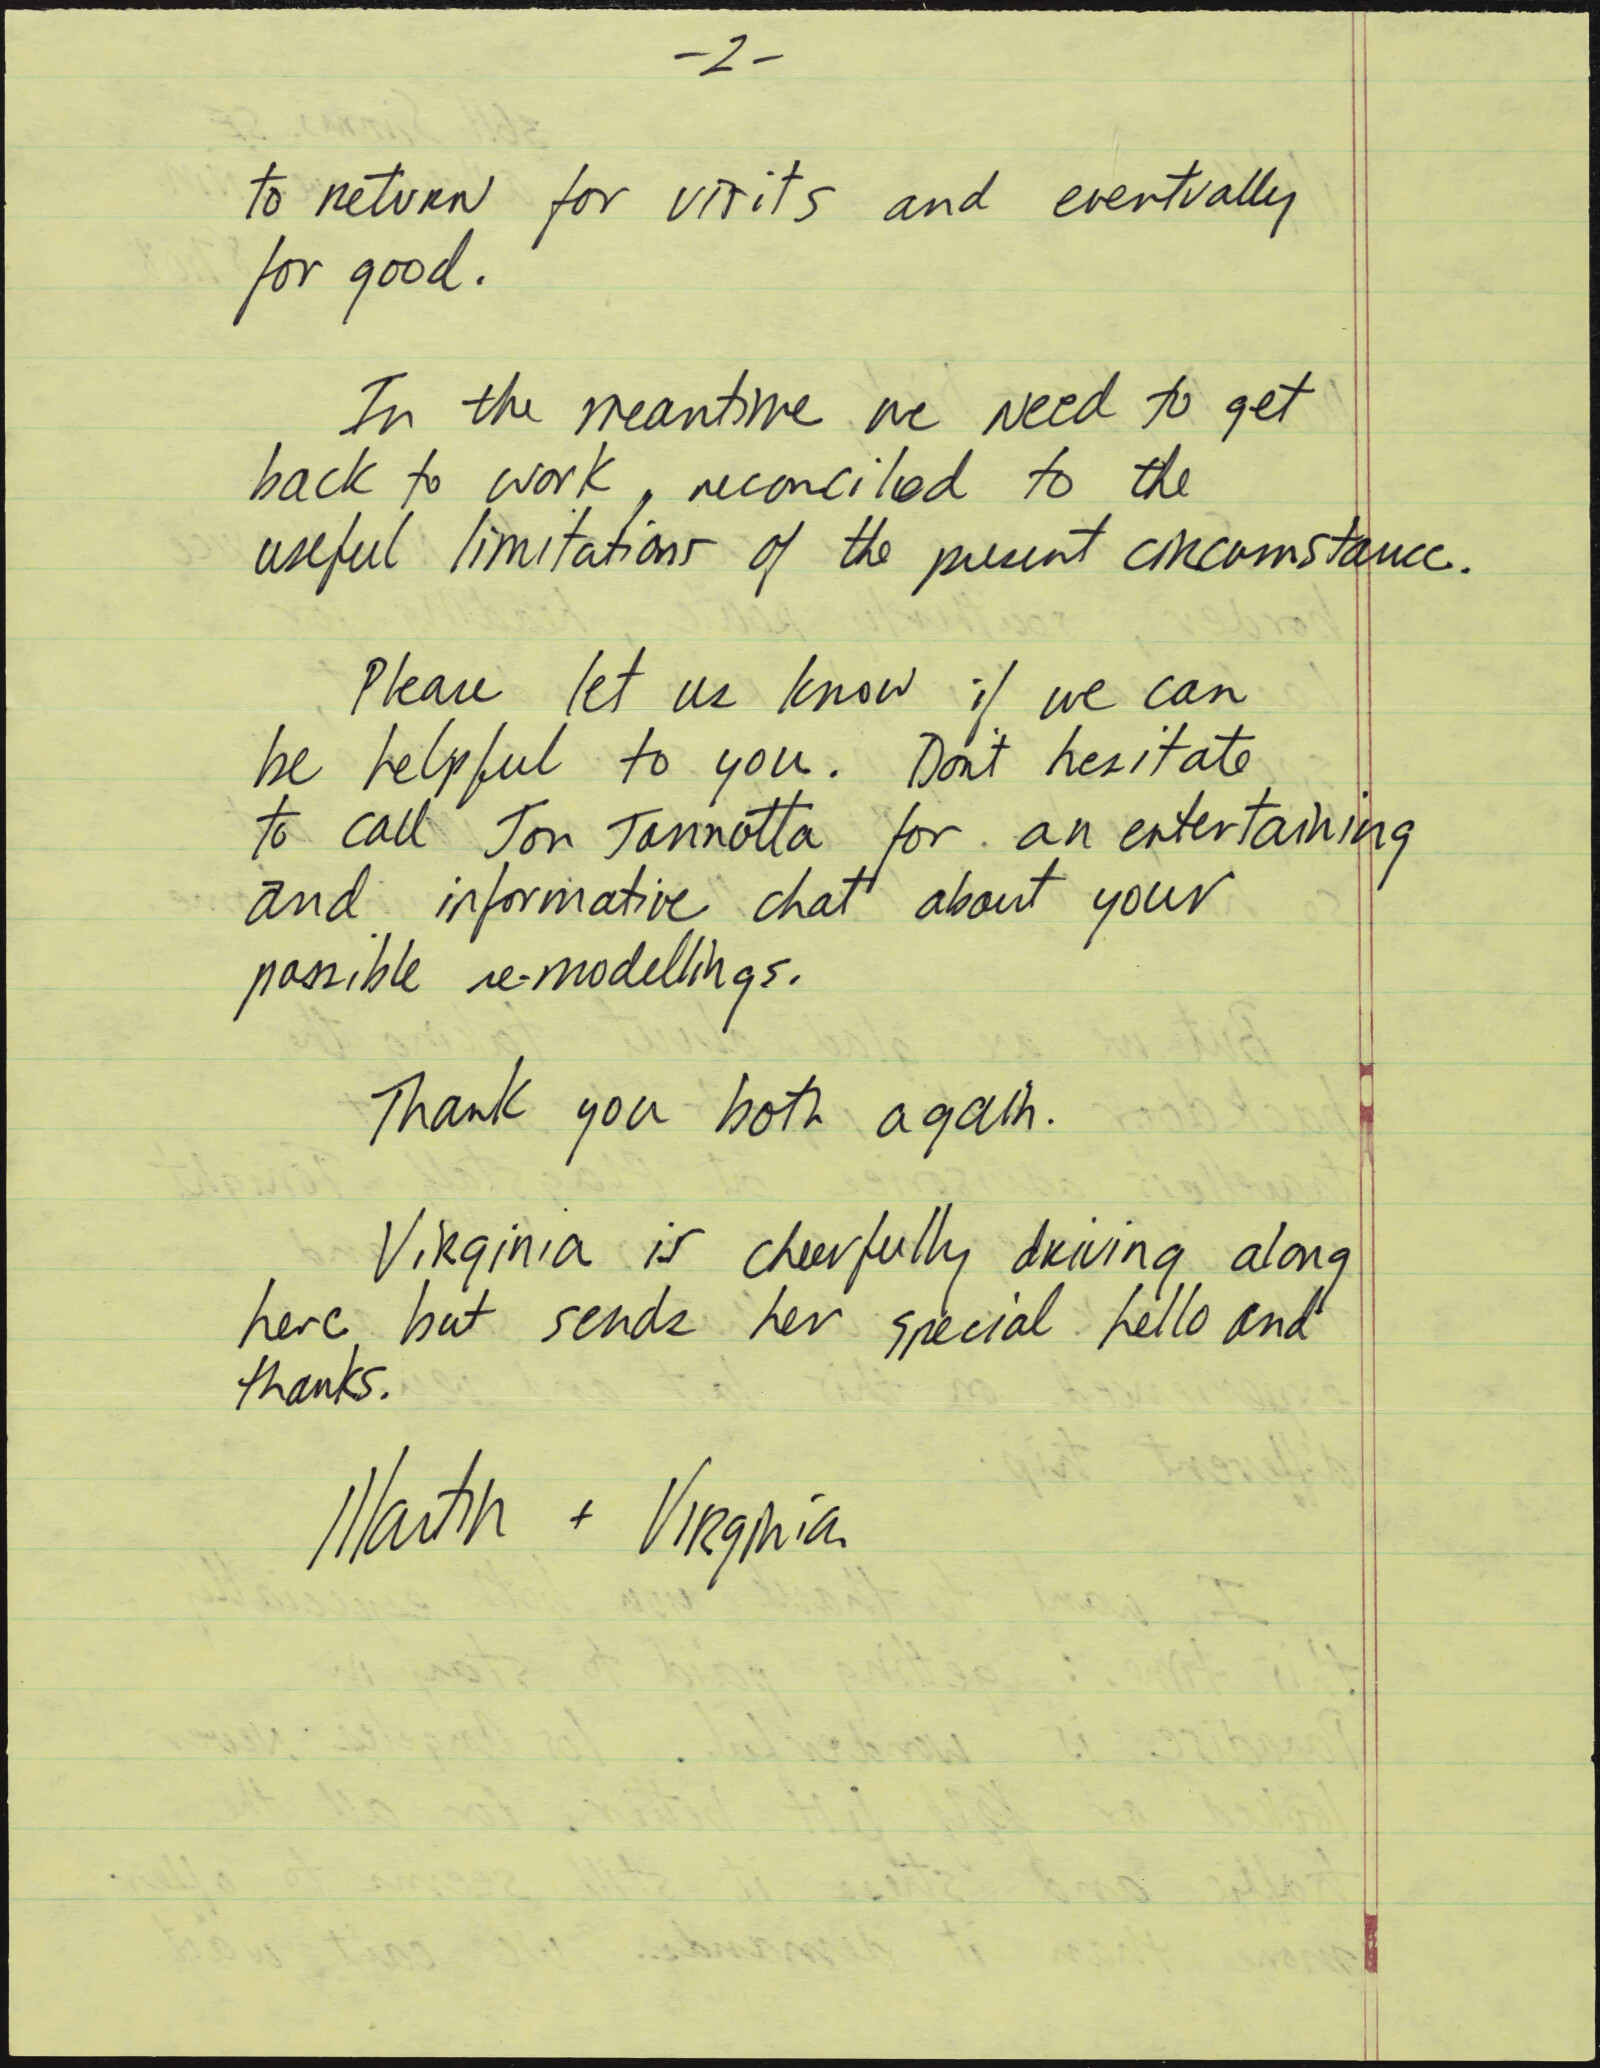 -2-
to return for visits and eventually
for good.
In the meantime we need to get
back to work, reconciled to the
useful limitations of the present circumstance.
Please let us know if we can
be helpful to you. Don't hesitate
to call Jon Jannotta for an entertaining
and informative chat about your
possible re-modellings.
Thank you both again.
Virginia is cheerfully driving along
here but sends her special hello and
thanks.
Martin + Virginia